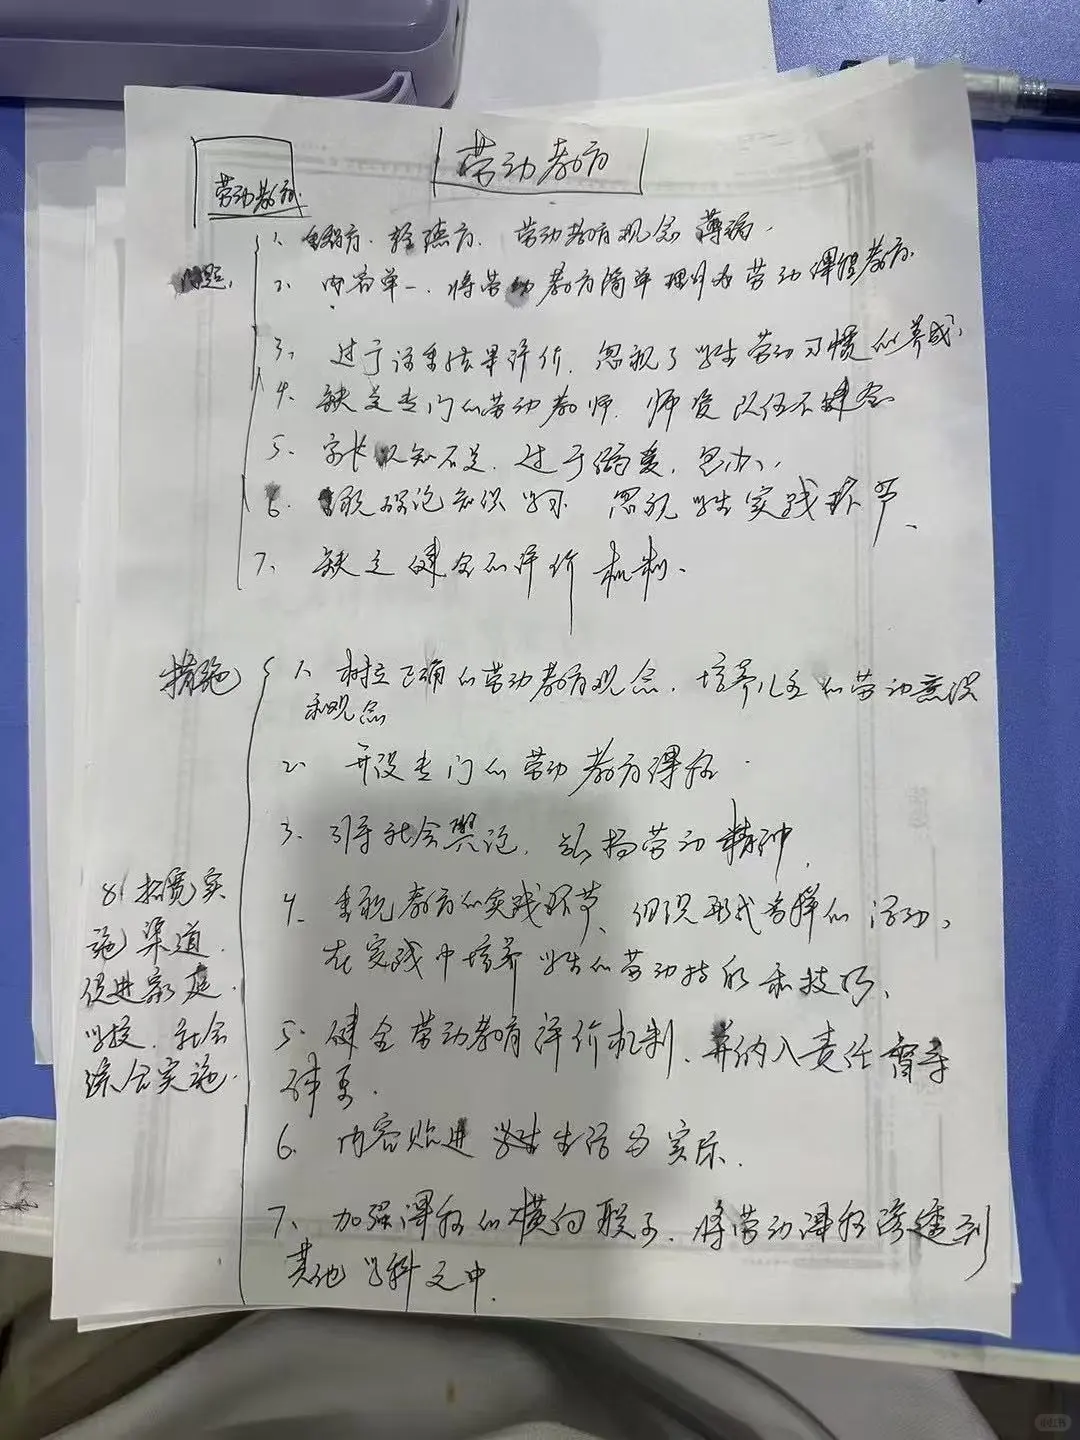 劳动教育
劳动教育
问题
1、重智育、轻德育、劳动教育观念薄弱、
2、内容单一、将劳动教育简单理解为劳动课程教育.
3、过于注重结果评价,忽视了学生劳动习惯的养成、
4、缺乏专门的劳动教师,师资队伍不健全
5、家长认知不足,过于溺爱,包办、
6、重视理论知识学习 忽视学生实践环节、
7、缺乏健全的评价机制、
措施
1、树立正确的劳动教育观念,培养儿童的劳动意识
和观念
2、开设专门的劳动教育课程.
3、引导社会舆论,弘扬劳动精神,
4、重视教育的实践环节,组织形式多样的活动,
在实践中培养学生的劳动技能和技巧、
5、健全劳动教育评价机制、并纳入责任督导
体系.
6、内容贴进学生生活与实际.
7、加强课程的横向联系,将劳动课程渗透到
其他学科之中.
8、拓宽实
施渠道.
促进家庭.
学校、社会
综合实施.